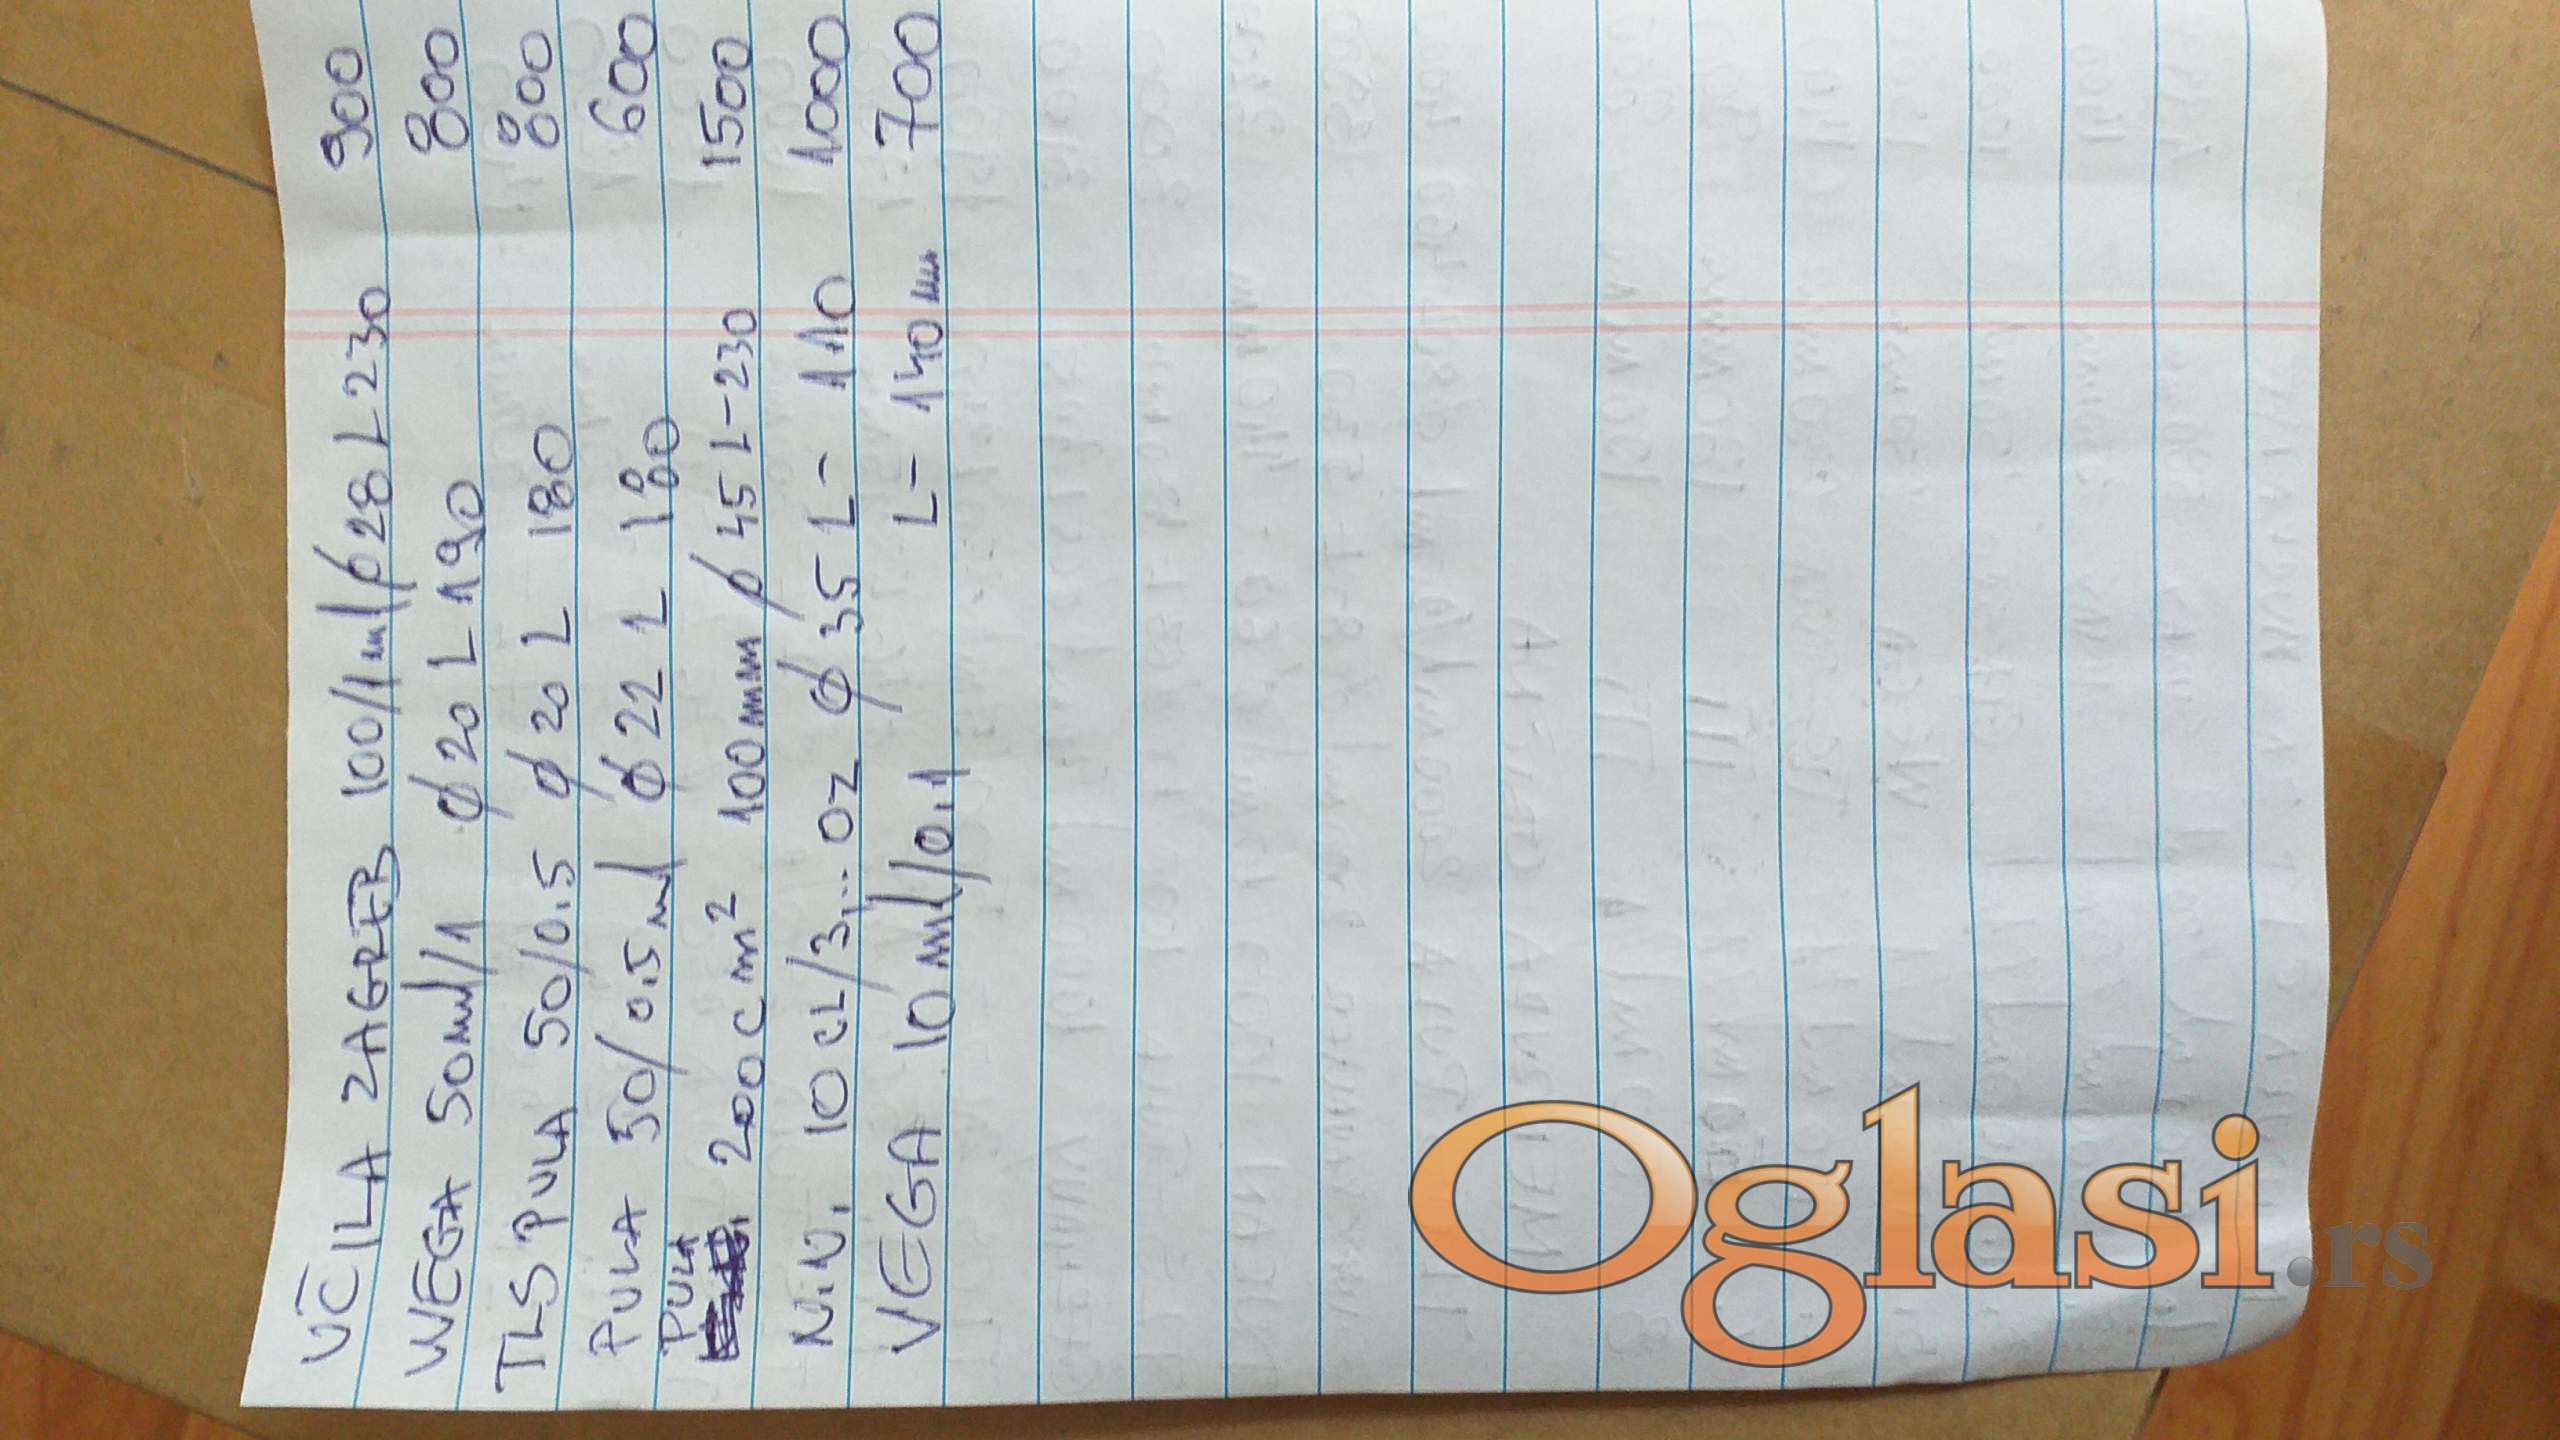 VČILA ZAGREB 100/1ml ø28 L230 900
WEGA 50ml/1 ø20 L190 800
TLS PULA 50/0.5 ø20 L 180 800
PULA 50/0.5ml ø22 L 180 600
PULA 200cm² 100mm ø45 L-230 1500
N.N. 10CL/3... OZ ø35 L- 110 1000
VEGA 10ml/0.1 L- 140m 700
Oglasi.rs